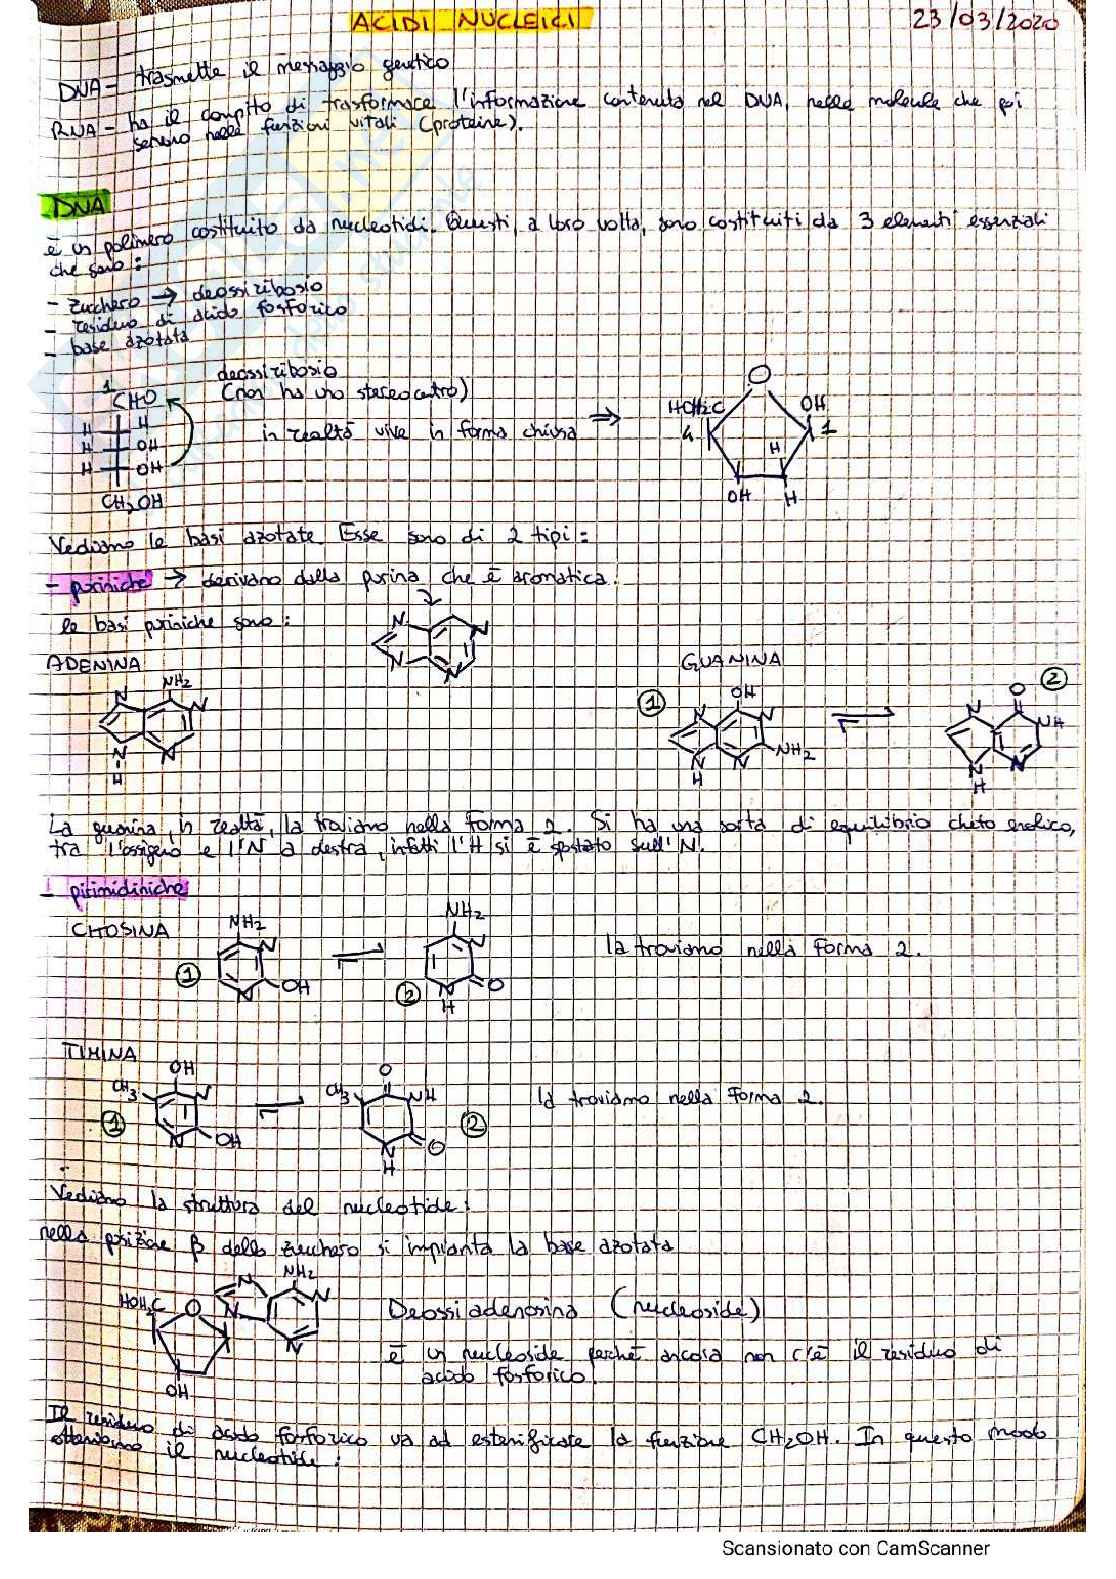 ACIDI NUCLEICI 23/03/2020
DNA - trasmette il messaggio genetico
RNA - ha il compito di trasformare l'informazione contenuta nel DNA, nelle molecole che poi
servono nelle funzioni vitali (proteine).
DNA
è un polimero costituito da nucleotidi. Questi, a loro volta, sono costituiti da 3 elementi essenziali
che sono:
- zucchero → deossiribosio
- residuo di acido fosforico
- base azotata
deossiribosio
(non ha uno stereocentro)
in realtà vive in forma chiusa ⇒
1 CHO
H H
H OH
H OH
CH2OH
O
HOH2C OH
4 1
H
OH H
Vediamo le basi azotate. Esse sono di 2 tipi:
- puriniche → derivano dalla purina, che è aromatica.
le basi puriniche sono:
N N
N N
ADENINA GUANINA
NH2
N N
N N
H
1 OH
N N
NH2
N N
H
O 2
N NH
N N
H
La guanina, in realtà, la troviamo nella forma 2. Si ha una sorta di equilibrio cheto enolico,
tra l'ossigeno e l'N a destra, infatti l'H si è spostato sull'N.
- pirimidiniche
CITOSINA
NH2 NH2
N N
1 N OH 2 N O
H
la troviamo nella Forma 2.
TIMINA
OH O
CH3 N CH3 NH
1 N OH N O 2
H
la troviamo nella Forma 2.
Vediamo la struttura del nucleotide:
nella posizione β dello zucchero si impianta la base azotata
NH2
HOH2C O N N
N N
OH
Deossiadenosina (nucleoside)
è un nucleoside perché ancora non c'è il residuo di
acido fosforico.
Il residuo di acido fosforico va ad esterificare la funzione CH2OH. In questo modo
otteniamo il nucleotide:
Scansionato con CamScanner